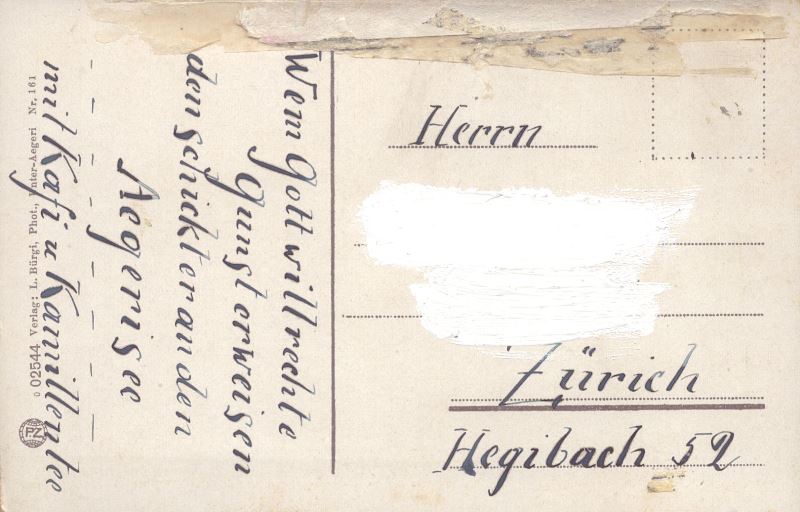 Wem Gott will rechte
Gunst erweisen
den schickt er an den
Aegerisee
mit Kafi u Kamillentee
Herrn
Zürich
Hegibach 52
02544 Verlag: L. Bürgi, Phot., Unter-Aegeri Nr. 161
PZ